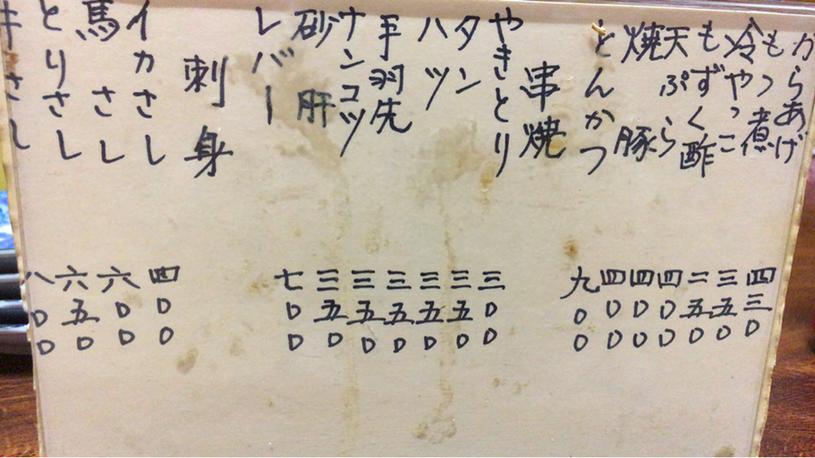 からあげ 四三〇
もつ煮 三五〇
冷やっこ 二五〇
もずく酢 四〇〇
天ぷら 四〇〇
焼豚 四〇〇
とんかつ 九〇〇
串焼
やきとり 三〇〇
タン 三五〇
ハツ 三五〇
手羽先 三五〇
ナンコツ 三五〇
砂肝 三五〇
レバー 七〇〇
刺身
イカさし 四〇〇
馬さし 六〇〇
とりさし 六五〇
さし 八〇〇